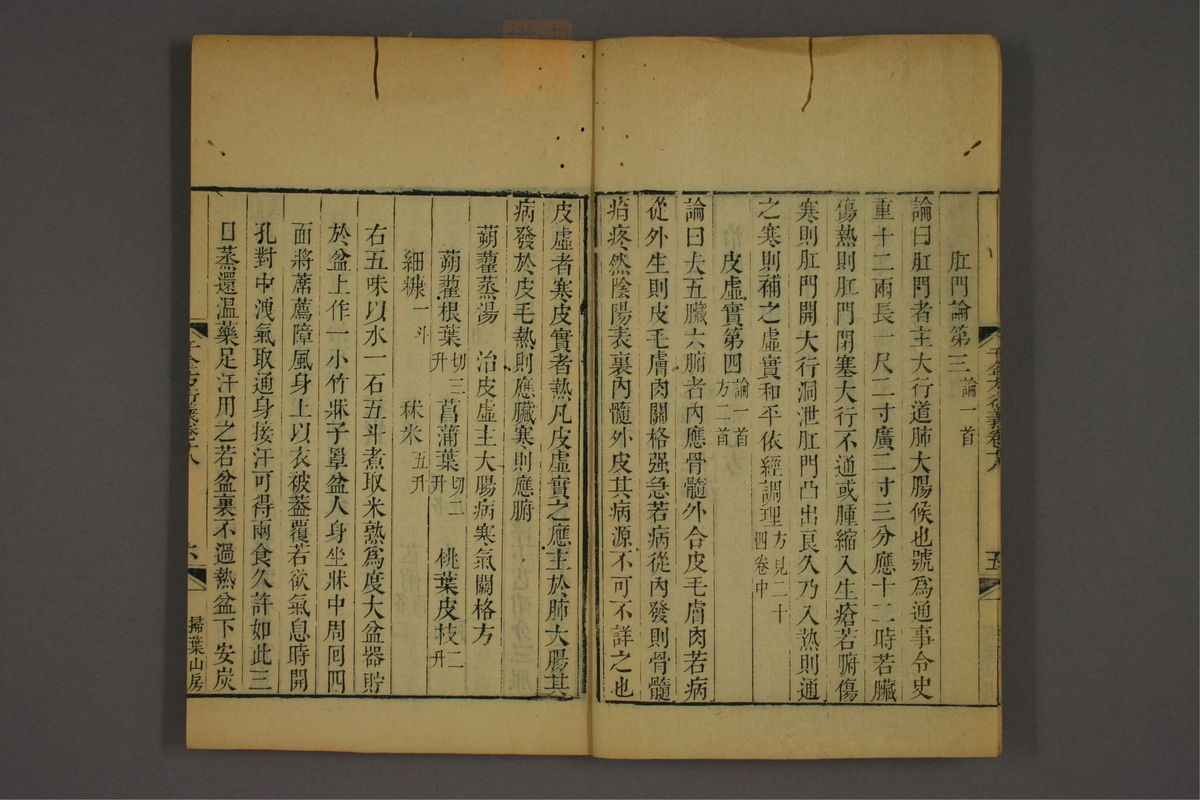 肛門論第三論一首
論曰肛門者主大行道肺大腸候也號爲通事令史
重十二兩長一尺二寸廣二寸三分應十二時若臟
傷熱則肛門閉塞大行不通或腫縮入生瘡若腑傷
寒則肛門開大行洞泄肛門凸出良久乃入熱則通
之寒則補之虛實和平依經調理方見二十四卷中
皮虛實第四論一首方二首
論曰夫五臟六腑者內應骨髓外合皮毛膚肉若病
從外生則皮毛膚肉關格强急若病從內發則骨髓
疳疼然陰陽表裏內髓外皮其病源不可不詳之也
五
皮虛者寒皮實者熱凡皮虛實之應主於肺大腸其
病發於皮毛熱則應臟寒則應腑
蒴藋蒸湯 治皮虛主大腸病寒氣關格方
蒴藋根葉切三升 菖蒲葉切二升 桃葉皮枝二升
細糠一斗 秫米五升
右五味以水一石五斗煮取米熟爲度大盆器貯
於盆上作一小竹牀子罩盆人身坐牀中周回四
面將蓆薦障風身上以衣被蓋覆若欲氣息時開
孔對中洩氣取通身接汗可得兩食久許如此三
日蒸還溫藥足汗用之若盆裏不過熱盆下安炭
千金方衍義卷十八
六
掃葉山房